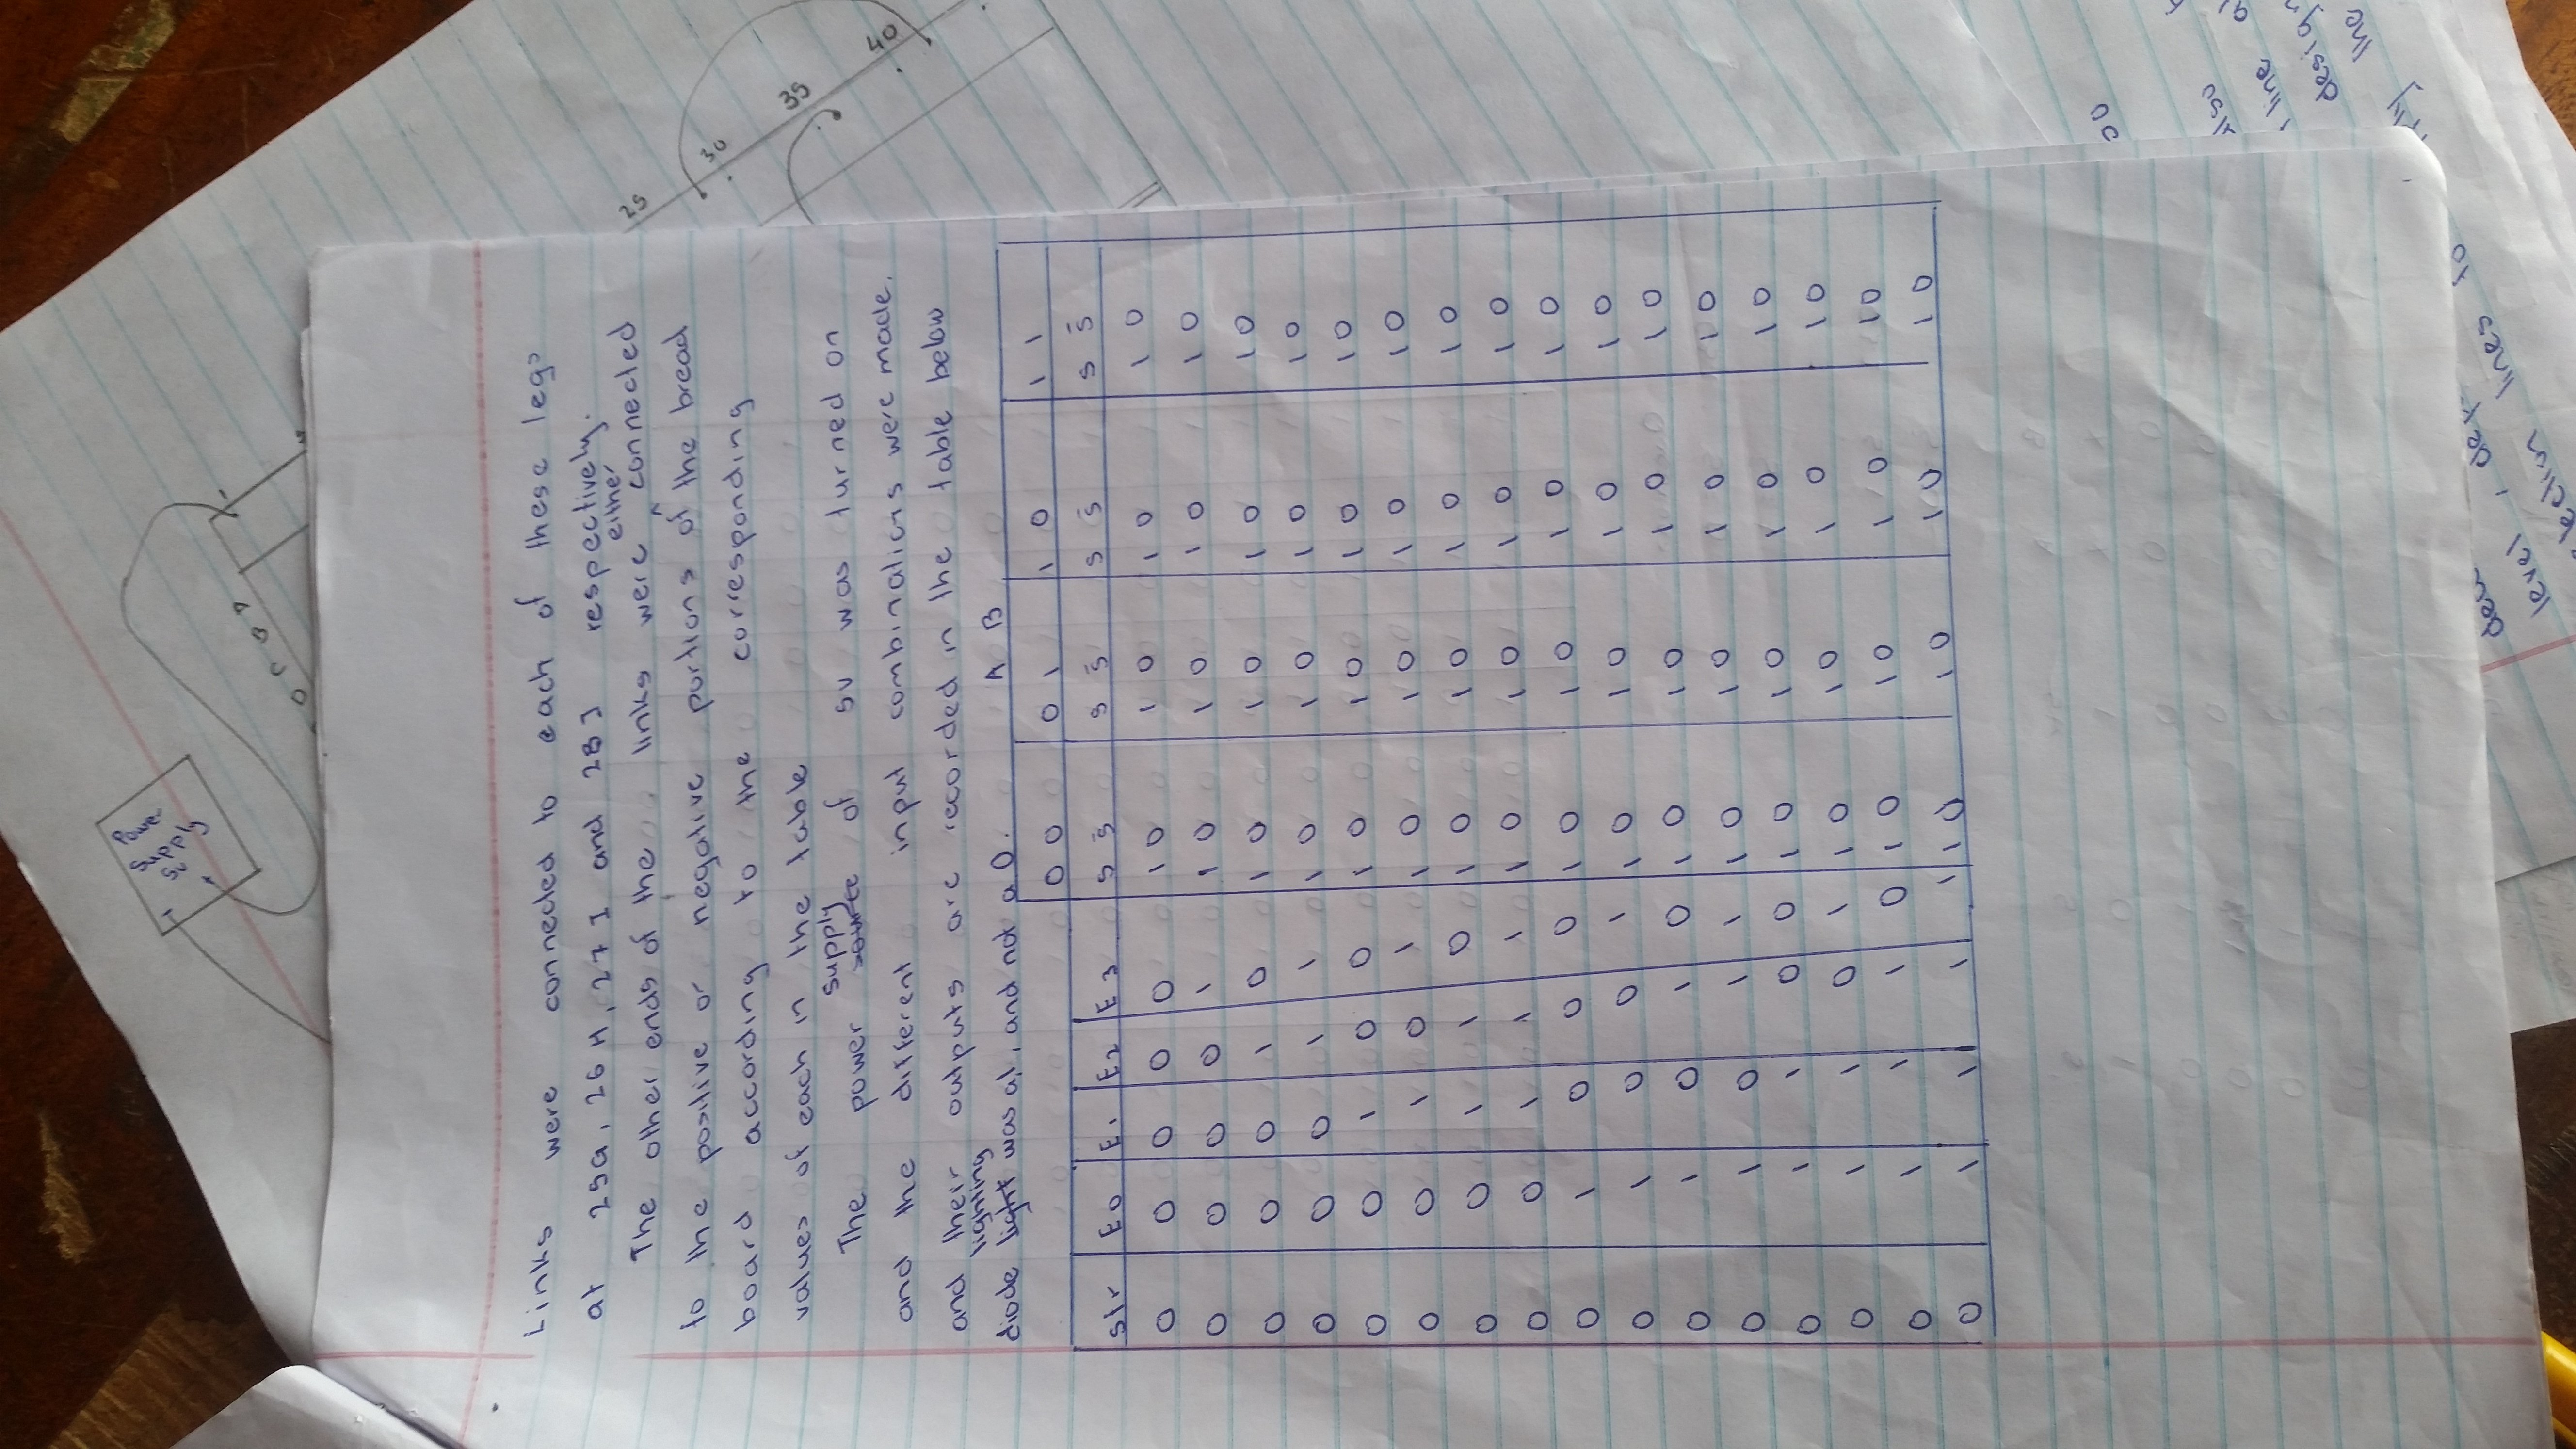 Power
Supply
5v
-
+
A
B
C
D
-
Links were connected to each of these legs
at 25G, 26H, 27I and 28J respectively.
either
The other ends of the links were ^ connected
to the positive or negative portions of the bread
board according to the corresponding
values of each in the table
supply
The power source of 5v was turned on
and the different input combinations were made,
and their outputs are recorded in the table below
lighting
diode light was a 1, and not a 0.
A B
00 01 10 11
Str E0 E1 E2 E3 S S̄ S S̄ S S̄ S S̄
0 0 0 0 0 10 10 10 10
0 0 0 0 1 10 10 10 10
0 0 0 1 0 10 10 10 10
0 0 0 1 1 10 10 10 10
0 0 1 0 0 10 10 10 10
0 0 1 0 1 10 10 10 10
0 0 1 1 0 10 10 10 10
0 0 1 1 1 10 10 10 10
0 1 0 0 0 10 10 10 10
0 1 0 0 1 10 10 10 10
0 1 0 1 0 10 10 10 10
0 1 0 1 1 10 10 10 10
0 1 1 0 0 10 10 10 10
0 1 1 0 1 10 10 10 10
0 1 1 1 0 10 10 10 10
0 1 1 1 1 10 10 10 10
25
30
35
40
line
the
level,
lines to